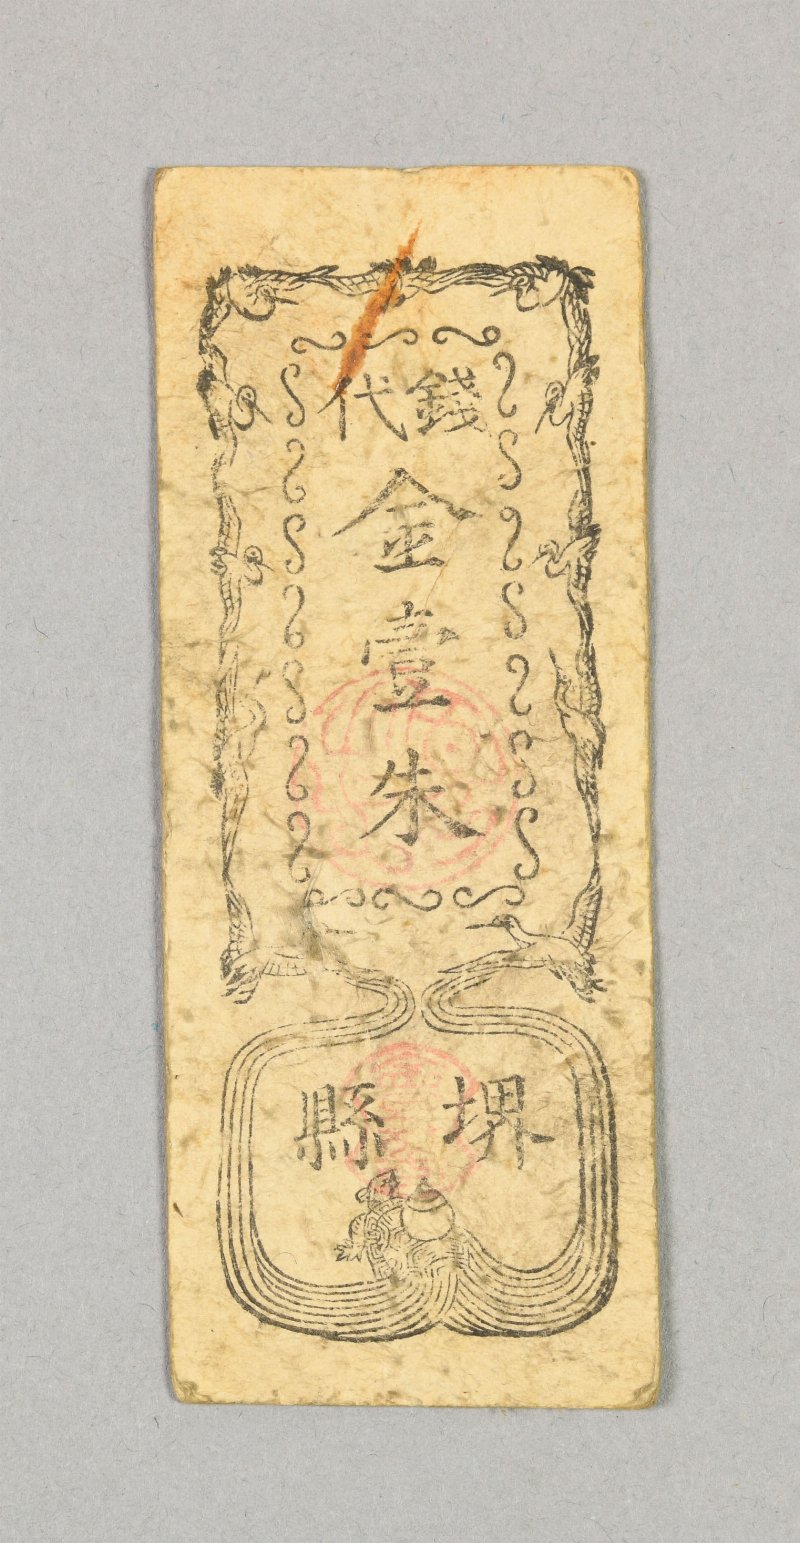 錢代
金壹朱
堺縣